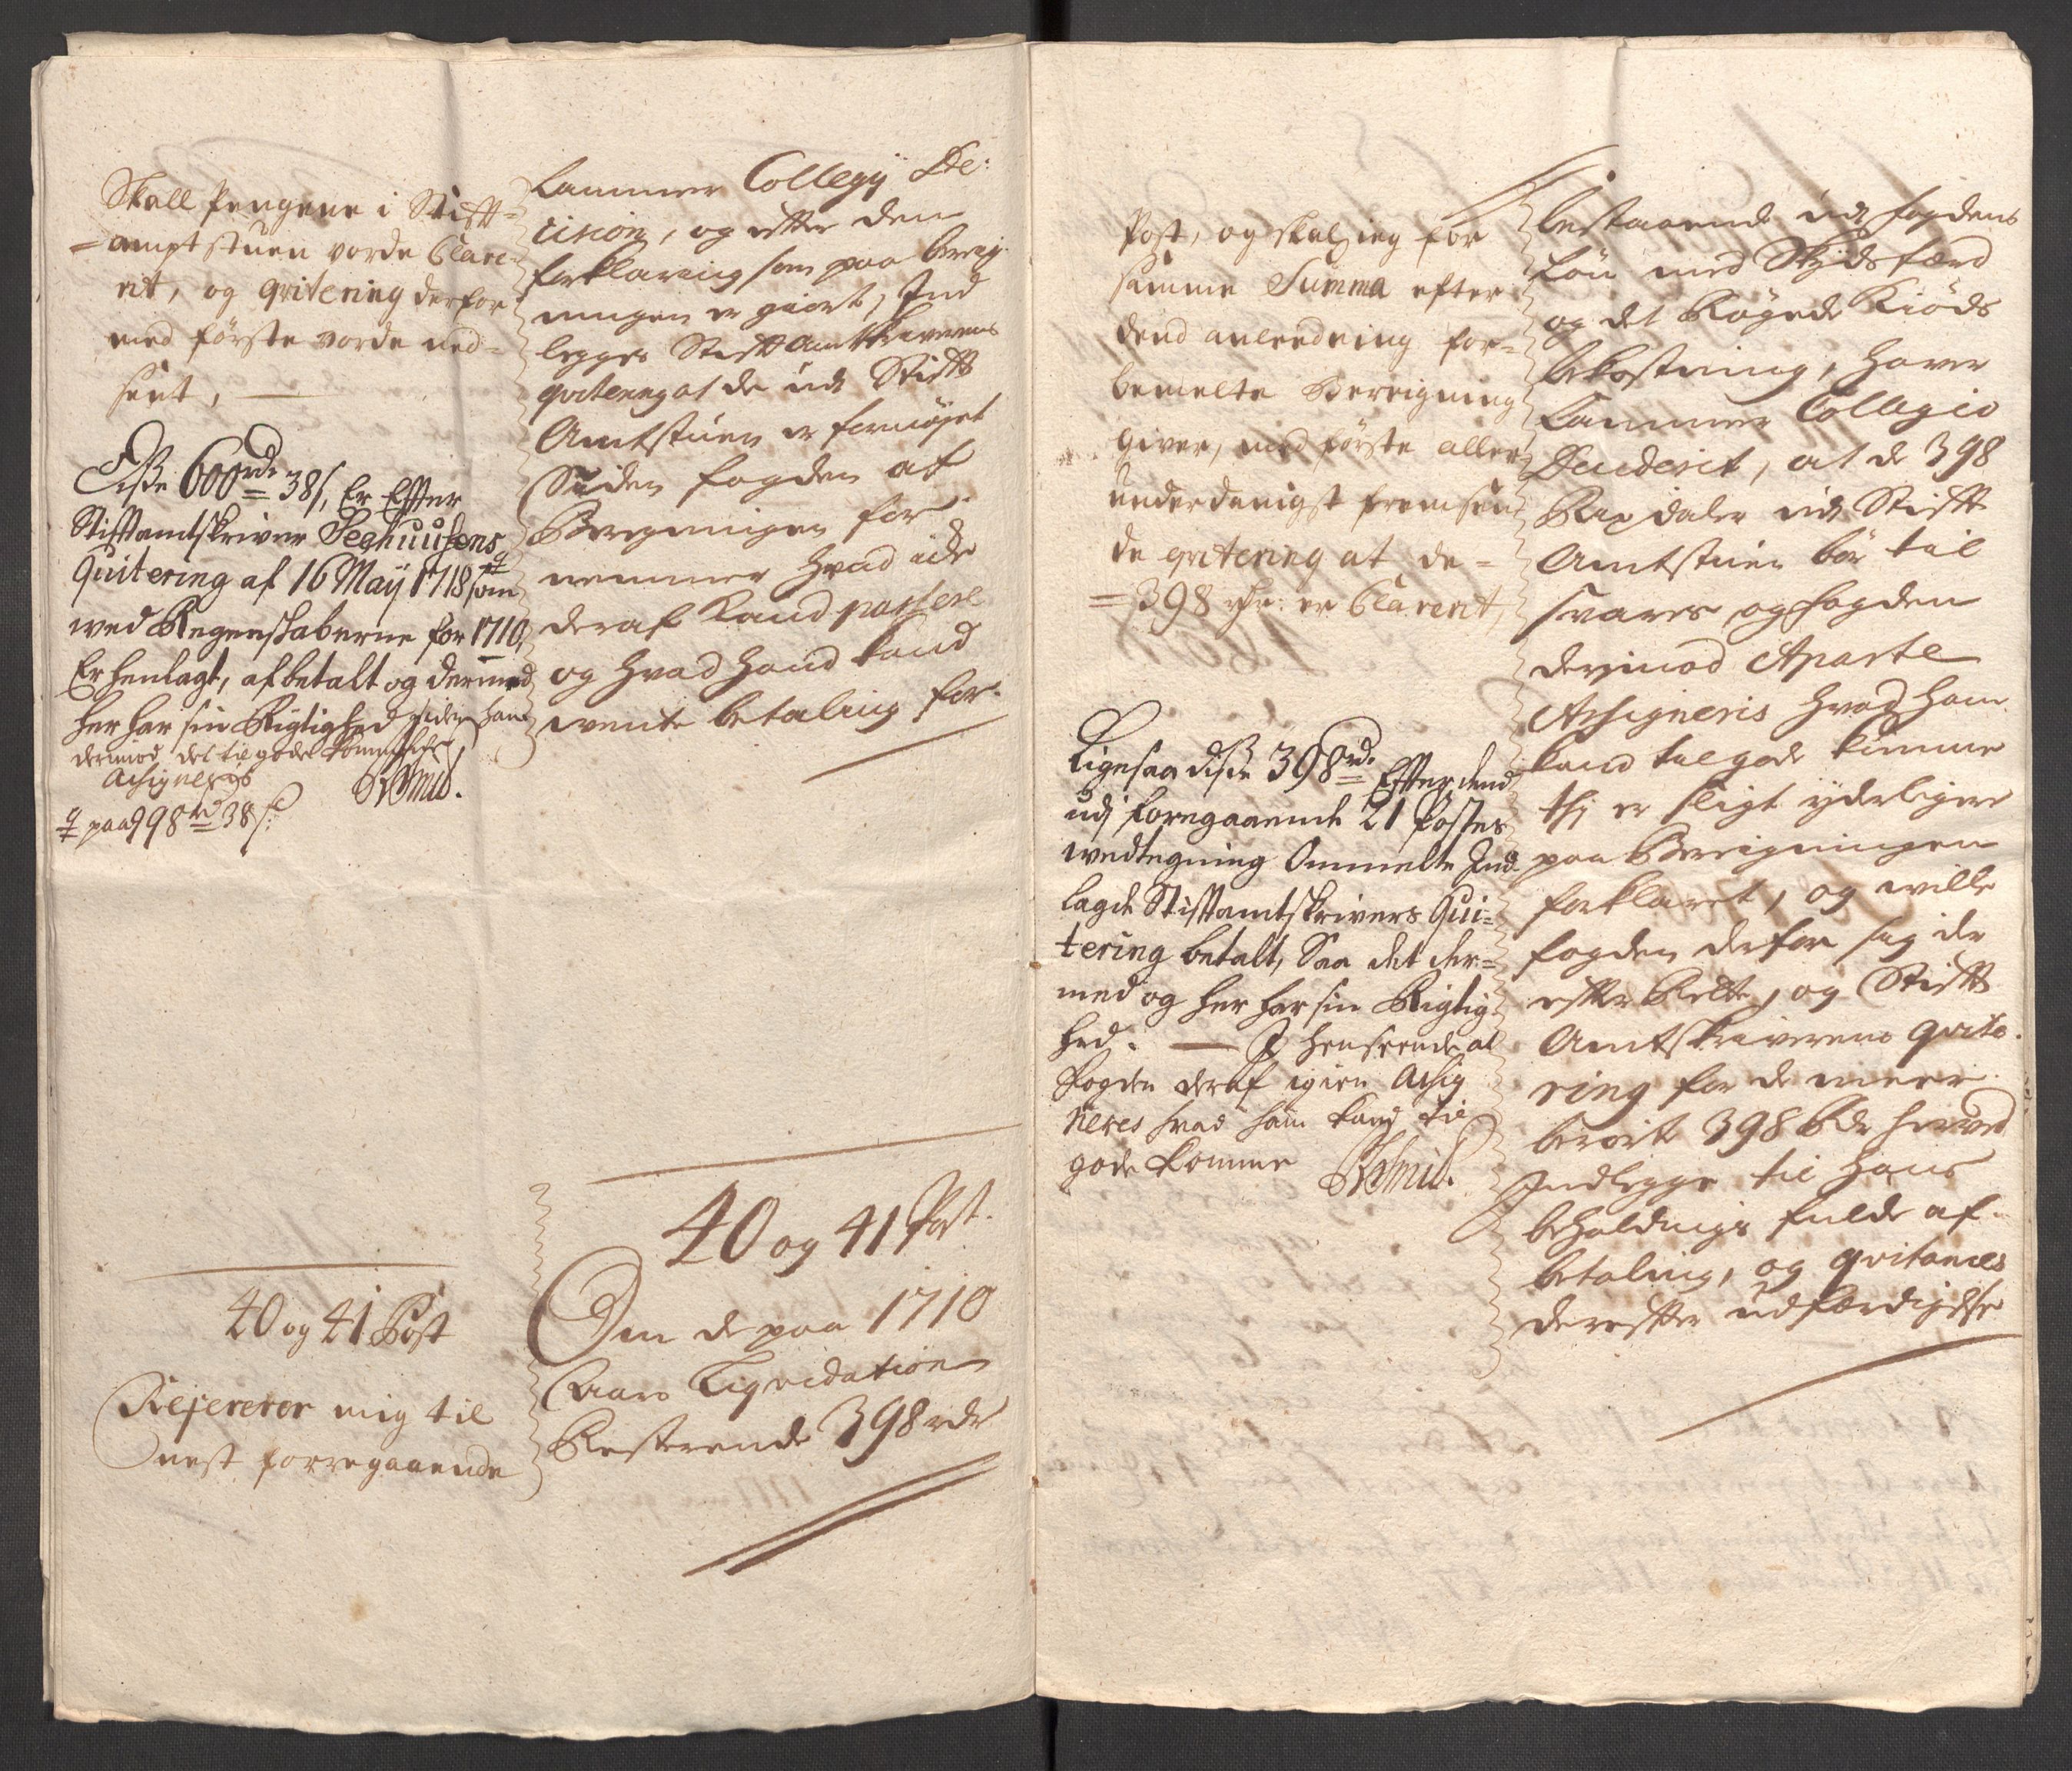 Skall Pengene i Stift-
=ampt stuen vorde Clare-
rit, og qvitering derfor
med förste vorde ned-
sent,
Disse 600 rd 38 s, Er Effter
Stiftamtskriver Seehuusens
Quitering af 16 Maij 1718 som
wed Regenskaberne for 1710,
Er henlagt, afbetalt og dermed
her har sin Rigtighed siden hand
derimod det til gode kommende
Assigneris
paa 998 rd 38 s:
40 og 41 Post
Refererer mig til
nest forregaaende
Cammer Collegij De:
cision, og efter den
forklaring som paa bereg-
ningen er giort, Ind
legges Stiftamtskriverens
qvitering at de udi Stifts
Amtstuen er fornöyet
Siden fogden at
Beregningen for
nemmer hvad icke
deraf kand passere
og hvad hand kand
vente betaling for.
40 og 41 Post.
Om de paa 1710
Aars Liqvidation
Resterende 398 rdr
Post, og skal ieg for
samme Summa efter
dend anleedning for-
bemelte Bereigning
giver, med förste aller
underdanigst fremsen-
de qvitering at de-
=398 rdr: er Clarerit,
Ligesaa disse 398 rd. Effter dend
udj foregaaende 21 Postes
wedtegning Ommelte Ind-
lagde Stiftamtskrivers Qui-
tering betalt, Saa det der-
med og her har sin Rigtig
hed. — I henseende at
Fogden deraf igien Assig
neres hvad ham kand til
gode komme
bestaaende udi fogdens
Lön med Skydsferd
og det Rögede Kiöds
bekostning, haver
Cammer Collegio
Decideret, at de 398
Rixdaler udi Stift
Amtstuen bör til
svares og fogden
derimod Aparte
Assigneris hvad ham
kand tilgode komme
thj er sligt yderligere
paa Beregningen
forklaret, og wille
fogden derfor sig der
efter Rette, og Stift
Amtskriverens qvite-
ring for de meer
berörte 398 Rdr herved
Indlegge til hans
beholdnings fulde af-
betaling, og qvitances
derefter udferdigelse